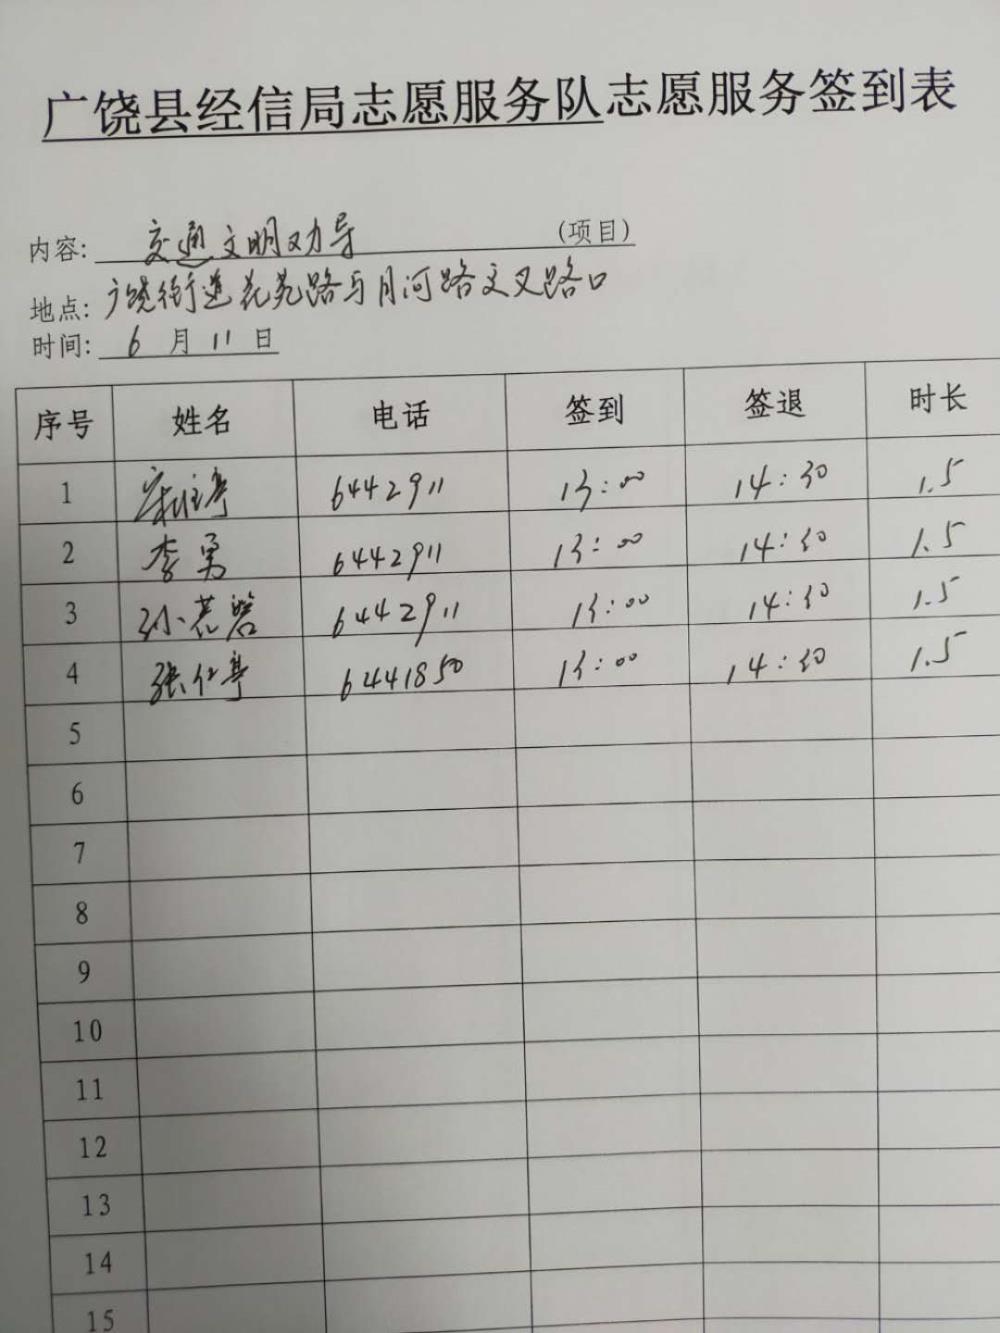 广饶县经信局志愿服务队志愿服务签到表
内容: 交通文明劝导 (项目)
地点: 广饶街道花苑路与月河路交叉路口
时间: 6 月 11 日
序号 姓名 电话 签到 签退 时长
1 6442911 13:00 14:30 1.5
2 李勇 6442911 13:00 14:30 1.5
3 孙 6442911 13:00 14:30 1.5
4 张仁亭 6441850 13:00 14:30 1.5
5
6
7
8
9
10
11
12
13
14
15